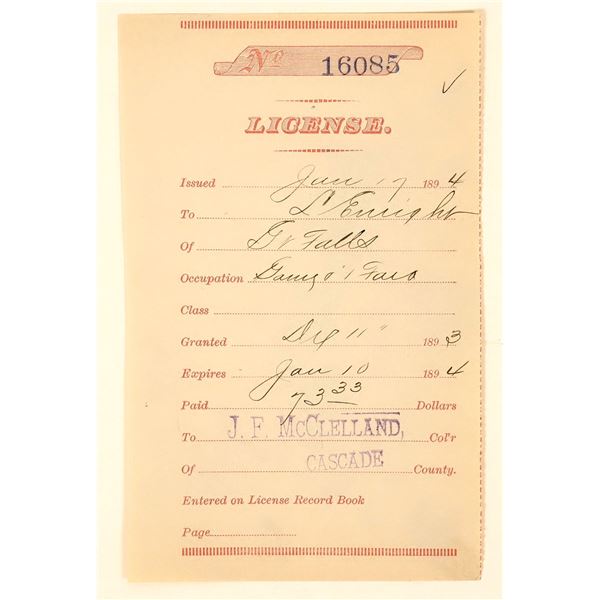 No 16085
LICENSE.
Issued Jan 17 1894
To L Enright
Of Gt Falls
Occupation Game of Faro
Class
Granted Dec 11" 1893
Expires Jan 10 1894
Paid 73 33 Dollars
To J. F. McCLELLAND, Col'r
Of CASCADE County.
Entered on License Record Book
Page